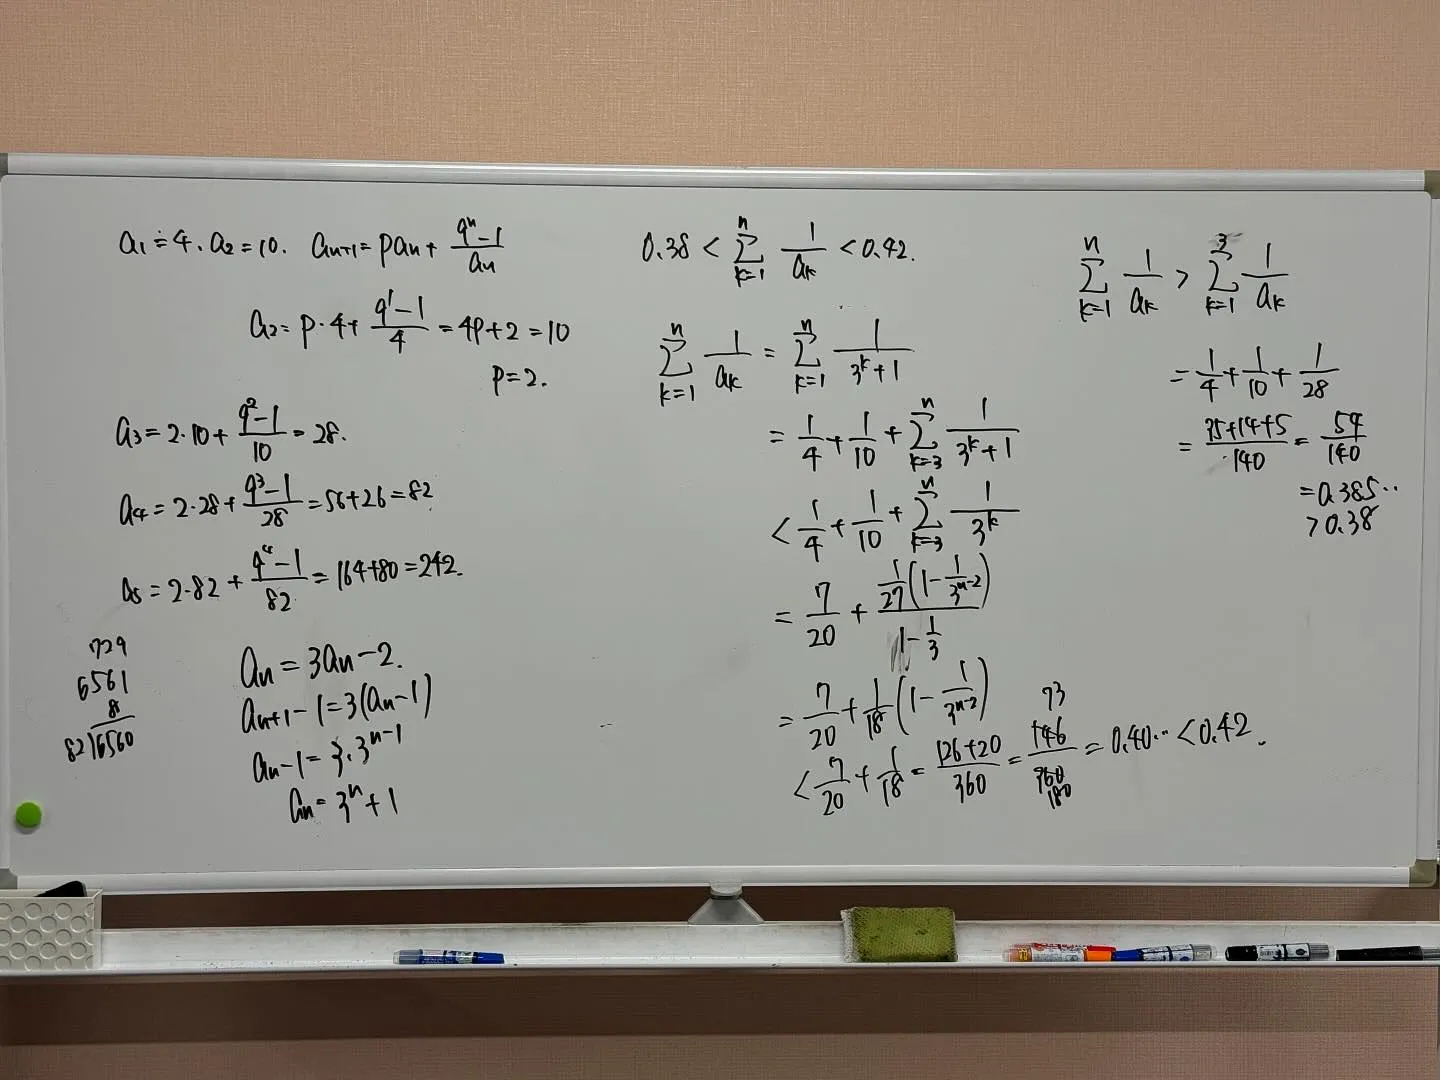 a₁ = 4. a₂ = 10. aₙ₊₁ = paₙ + (9ⁿ-1)/aₙ
a₂ = p·4 + (9¹-1)/4 = 4p+2 = 10
p=2.
a₃ = 2·10 + (9²-1)/10 = 28.
a₄ = 2·28 + (9³-1)/28 = 56+26 = 82
a₅ = 2·82 + (9⁴-1)/82 = 164+80 = 242.
729
6561
8
82)6560
aₙ = 3aₙ-2.
aₙ₊₁-1 = 3(aₙ-1)
aₙ-1 = 3·3ⁿ⁻¹
aₙ = 3ⁿ+1
0.38 < Σ[k=1→n] 1/aₖ < 0.42.
Σ[k=1→n] 1/aₖ = Σ[k=1→n] 1/(3ᵏ+1)
= 1/4 + 1/10 + Σ[k=3→n] 1/(3ᵏ+1)
< 1/4 + 1/10 + Σ[k=3→n] 1/3ᵏ
= 7/20 + (1/27(1 - 1/3ⁿ⁻²))/(1 - 1/3)
= 7/20 + 1/18(1 - 1/3ⁿ⁻²)
< 7/20 + 1/18 = (126+20)/360 = 146/360 = 0.40·· < 0.42.
73
180
Σ[k=1→n] 1/aₖ > Σ[k=1→3] 1/aₖ
= 1/4 + 1/10 + 1/28
= (35+14+5)/140 = 54/140
= 0.385··
> 0.38